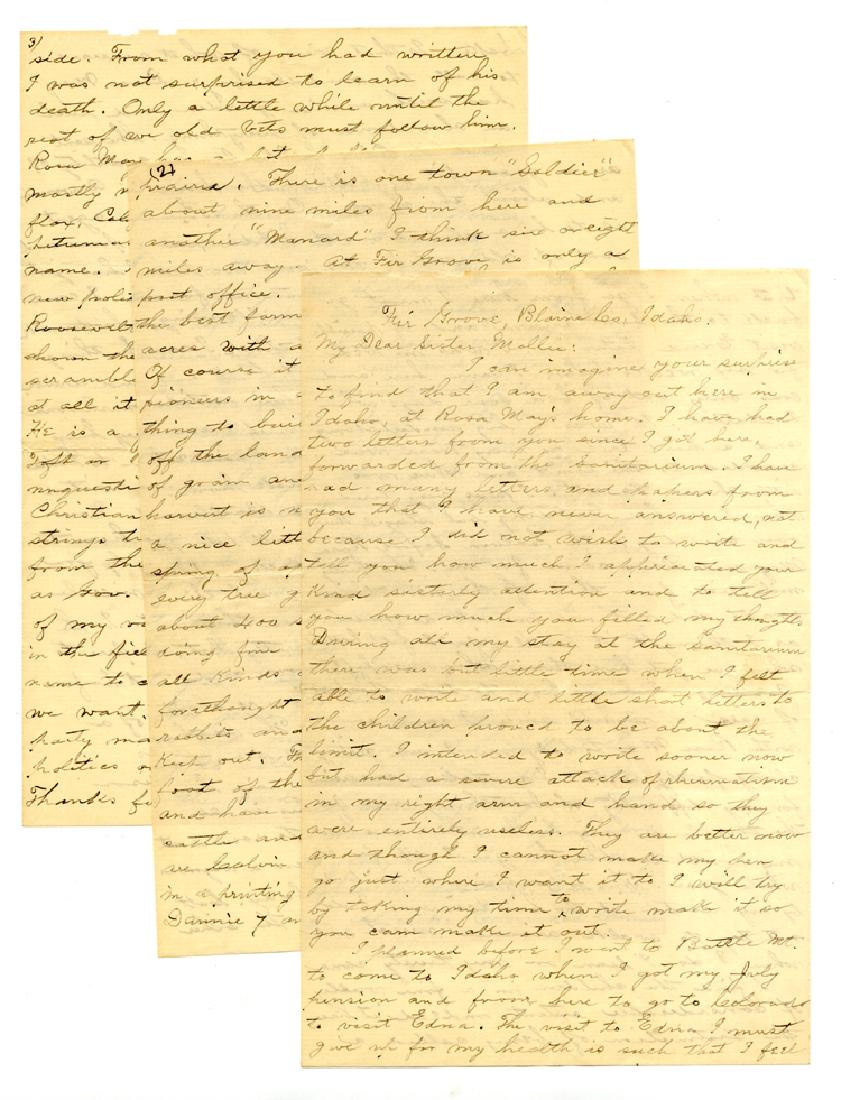 Fir Grove, Blaine Co, Idaho.
My Dear Sister Mollie:
I can imagine your surprise
to find that I am away out here in
Idaho, at Rosa May's home. I have had
two letters from you since I got here,
forwarded from the Sanitarium. I have
had many letters and papers from
you that I have never answered, not
because I did not wish to write and
tell you how much I appriciated your
kind sisterly attention and to tell
you how much you filled my thoughts
During all my stay at the Sanitarium
there was but little time when I felt
able to write and little short letters to
the children proved to be about the
limit. I intended to write sooner now
but had a severe attack of rheumatism
in my right arm and hand so they
were entirely useless. They are better now
and though I cannot make my pen
go just where I want it to I will try
by taking my time to write make it so
you can make it out.
I planned before I went to Battle Mt.
to come to Idaho when I got my July
pension and from here to go to Colorado
to visit Edna. The visit to Edna I must
give up for my health is such that I feel
(2)
prairie. There is one town "Soldier"
about nine miles from here and
another "Manard" I think six or eight
miles away. At Fir Grove is only a
post office.
the best farm
acres with a
Of course it
pioneers in
thing to buil
off the lan
of grain an
harvest is n
a nice littl
spring of
every tree g
about 400
doing fine
all kinds
forethought
rabbits an
Keep out. Th
foot of the
and have
cattle and
are Calvin
in a printing
Dannie 7 an
3/
side. From what you had written
I was not surprised to learn of his
death. Only a little while until the
rest of we old Vets must follow him.
Rosa May has
mostly
flox. Cal
petunias
name.
new polis
Roosevelt
down the
scramble
at all it
He is a
Taft in
unquesti
Christian
strings t
from the
as Gov.
of my
in the fie
name to
we want.
party ma
politics
Thanks fo